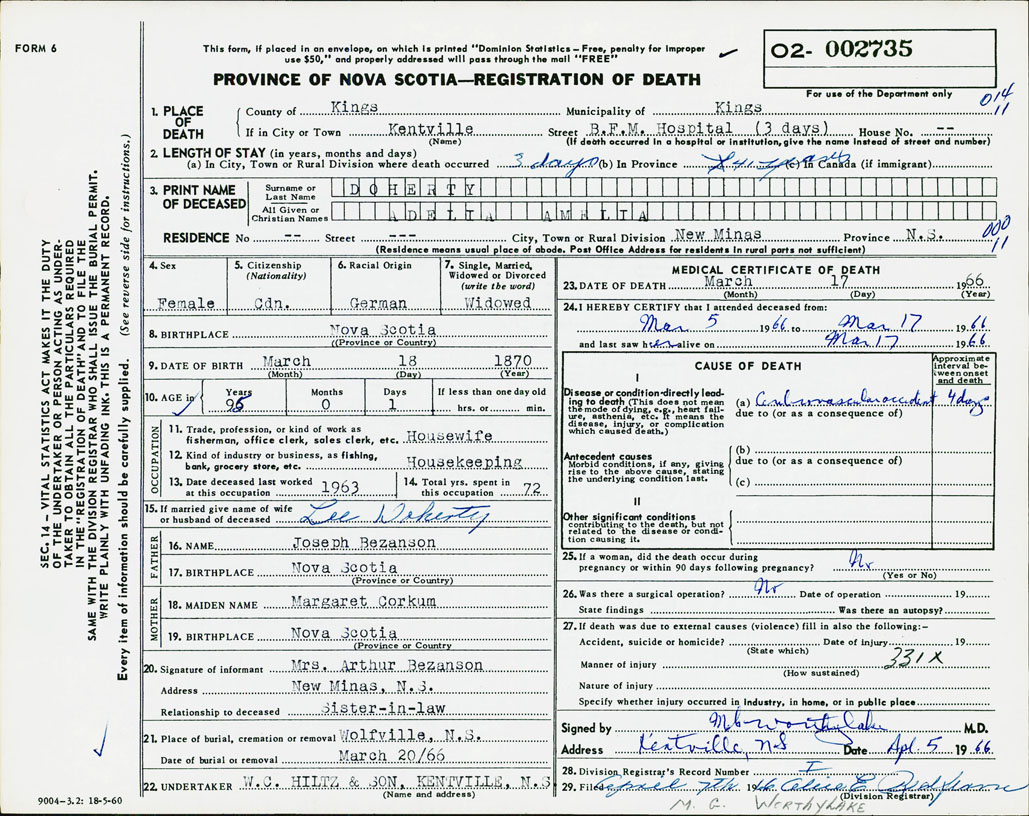 FORM 6
This form, if placed in an envelope, on which is printed "Dominion Statistics – Free, penalty for improper
use $50," and properly addressed will pass through the mail "FREE"
PROVINCE OF NOVA SCOTIA—REGISTRATION OF DEATH
02- 002735
For use of the Department only
014
11
1. PLACE OF DEATH
County of Kings Municipality of Kings
If in City or Town Kentville Street B.F.M. Hospital (3 days) House No. --
(Name) (If death occurred in a hospital or institution, give the name instead of street and number)
2. LENGTH OF STAY (in years, months and days)
(a) In City, Town or Rural Division where death occurred 3 days (b) In Province (c) In Canada (if immigrant)
3. PRINT NAME OF DECEASED
Surname or Last Name DOHERTY
All Given or Christian Names ADELIA AMELIA
RESIDENCE No -- Street --- City, Town or Rural Division New Minas Province N.S.
000
11
(Residence means usual place of abode. Post Office Address for residents in rural parts not sufficient)
4. Sex Female
5. Citizenship (Nationality) Cdn.
6. Racial Origin German
7. Single, Married, Widowed or Divorced (write the word) Widowed
8. BIRTHPLACE Nova Scotia
(Province or Country)
9. DATE OF BIRTH March 18 1870
(Month) (Day) (Year)
10. AGE in Years 95 Months 0 Days 1 If less than one day old hrs. or min.
OCCUPATION
11. Trade, profession, or kind of work as
fisherman, office clerk, sales clerk, etc. Housewife
12. Kind of industry or business, as fishing,
bank, grocery store, etc. Housekeeping
13. Date deceased last worked
at this occupation 1963
14. Total yrs. spent in
this occupation 72
15. If married give name of wife
or husband of deceased Lee Doherty
FATHER
16. NAME Joseph Bezanson
17. BIRTHPLACE Nova Scotia
(Province or Country)
MOTHER
18. MAIDEN NAME Margaret Corkum
19. BIRTHPLACE Nova Scotia
(Province or Country
20. Signature of informant Mrs. Arthur Bezanson
Address New Minas, N.S.
Relationship to deceased Sister-in-law
21. Place of burial, cremation or removal Wolfville, N.S.
Date of burial or removal March 20/66
22. UNDERTAKER W.C. HILTZ & SON, KENTVILLE, N.S.
(Name and address)
MEDICAL CERTIFICATE OF DEATH
23. DATE OF DEATH March 17 1966
(Month) (Day) (Year)
24. I HEREBY CERTIFY that I attended deceased from:
Mar 5 1966 to Mar 17 1966
and last saw her alive on Mar 17 1966
CAUSE OF DEATH
Approximate interval between onset and death
I
Disease or condition directly leading to death (This does not mean the mode of dying, e.g., heart failure, asthenia, etc. It means the disease, injury, or complication which caused death.)
(a) Cerebrovascular accident 4 days
due to (or as a consequence of)
Antecedent causes
Morbid conditions, if any, giving rise to the above cause, stating the underlying condition last.
(b)
due to (or as a consequence of)
(c)
II
Other significant conditions
contributing to the death, but not related to the disease or condition causing it.
25. If a woman, did the death occur during
pregnancy or within 90 days following pregnancy? No
(Yes or No)
26. Was there a surgical operation? No Date of operation 19
State findings Was there an autopsy?
27. If death was due to external causes (violence) fill in also the following:–
Accident, suicide or homicide? Date of injury 19
(State which)
331X
Manner of injury
(How sustained)
Nature of injury
Specify whether injury occurred in industry, in home, or in public place
Signed by M G Worthylake M.D.
Address Kentville, N S Date Apl. 5 1966
28. Division Registrar's Record Number I
29. Filed April 7th 1966 Alice E.
(Division Registrar)
M. G. WORTHYLAKE
SEC. 14 – VITAL STATISTICS ACT MAKES IT THE DUTY
OF THE UNDERTAKER OR PERSON ACTING AS UNDER-
TAKER TO OBTAIN ALL THE PARTICULARS REQUIRED
IN THE "REGISTRATION OF DEATH" AND TO FILE THE
SAME WITH THE DIVISION REGISTRAR WHO SHALL ISSUE THE BURIAL PERMIT.
WRITE PLAINLY WITH UNFADING INK. THIS IS A PERMANENT RECORD.
Every item of information should be carefully supplied. (See reverse side for instructions.)
9004–3.2: 18-5-60